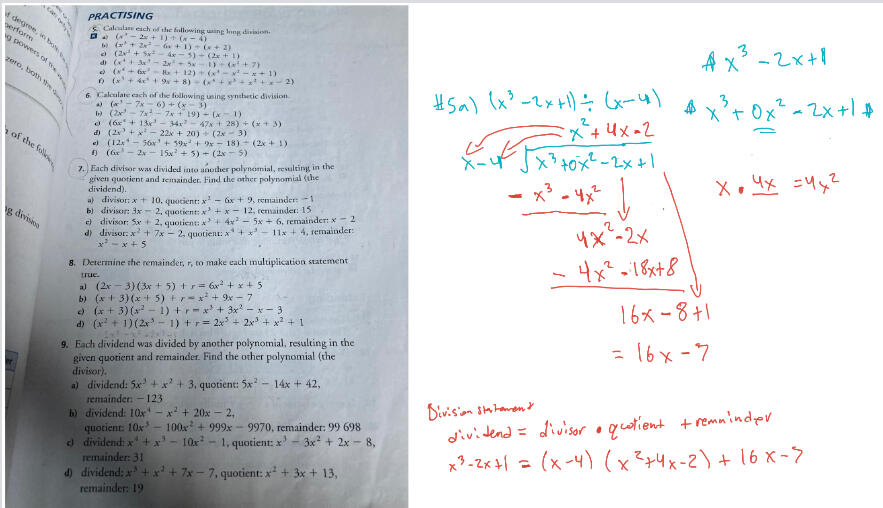 PRACTISING
5. Calculate each of the following using long division.
a) (x³ − 2x + 1) ÷ (x − 4)
b) (x³ + 2x² − 6x + 1) ÷ (x + 2)
c) (2x³ + 5x² − 4x − 5) ÷ (2x + 1)
d) (x⁴ + 3x³ − 2x² + 5x − 1) ÷ (x² + 7)
e) (x⁴ + 6x² − 8x + 12) ÷ (x³ − x² − x + 1)
f) (x⁵ + 4x⁴ + 9x + 8) ÷ (x⁴ + x³ + x² + x − 2)
6. Calculate each of the following using synthetic division.
a) (x³ − 7x − 6) ÷ (x − 3)
b) (2x³ − 7x² − 7x + 19) ÷ (x − 1)
c) (6x⁴ + 13x³ − 34x² − 47x + 28) ÷ (x + 3)
d) (2x³ + x² − 22x + 20) ÷ (2x − 3)
e) (12x⁴ − 56x³ + 59x² + 9x − 18) ÷ (2x + 1)
f) (6x³ − 2x − 15x² + 5) ÷ (2x − 5)
7. Each divisor was divided into another polynomial, resulting in the
given quotient and remainder. Find the other polynomial (the
dividend).
a) divisor: x + 10, quotient: x² − 6x + 9, remainder: −1
b) divisor: 3x − 2, quotient: x³ + x − 12, remainder: 15
c) divisor: 5x + 2, quotient: x³ + 4x² − 5x + 6, remainder: x − 2
d) divisor: x² + 7x − 2, quotient: x⁴ + x³ − 11x + 4, remainder:
x² − x + 5
8. Determine the remainder, r, to make each multiplication statement
true.
a) (2x − 3)(3x + 5) + r = 6x² + x + 5
b) (x + 3)(x + 5) + r = x² + 9x − 7
c) (x + 3)(x² − 1) + r = x³ + 3x² − x − 3
d) (x² + 1)(2x³ − 1) + r = 2x⁵ + 2x³ + x² + 1
9. Each dividend was divided by another polynomial, resulting in the
given quotient and remainder. Find the other polynomial (the
divisor).
a) dividend: 5x³ + x² + 3, quotient: 5x² − 14x + 42,
remainder: −123
b) dividend: 10x⁴ − x² + 20x − 2,
quotient: 10x³ − 100x² + 999x − 9970, remainder: 99 698
c) dividend: x⁴ + x³ − 10x² − 1, quotient: x³ − 3x² + 2x − 8,
remainder: 31
d) dividend: x³ + x² + 7x − 7, quotient: x² + 3x + 13,
remainder: 19
of degree, in both
perform
g powers of the
zero, both the
of the following
g division
x³ − 2x + 1
#5a) (x³ − 2x + 1) ÷ (x − 4)
x³ + 0x² − 2x + 1
x² + 4x − 2
x − 4 x³ + 0x² − 2x + 1
− x³ − 4x²
x · 4x = 4x²
4x² − 2x
− 4x² − 18x + 8
16x − 8 + 1
= 16x − 7
Division statement
dividend = divisor · quotient + remainder
x³ − 2x + 1 = (x − 4) (x² + 4x − 2) + 16x − 7